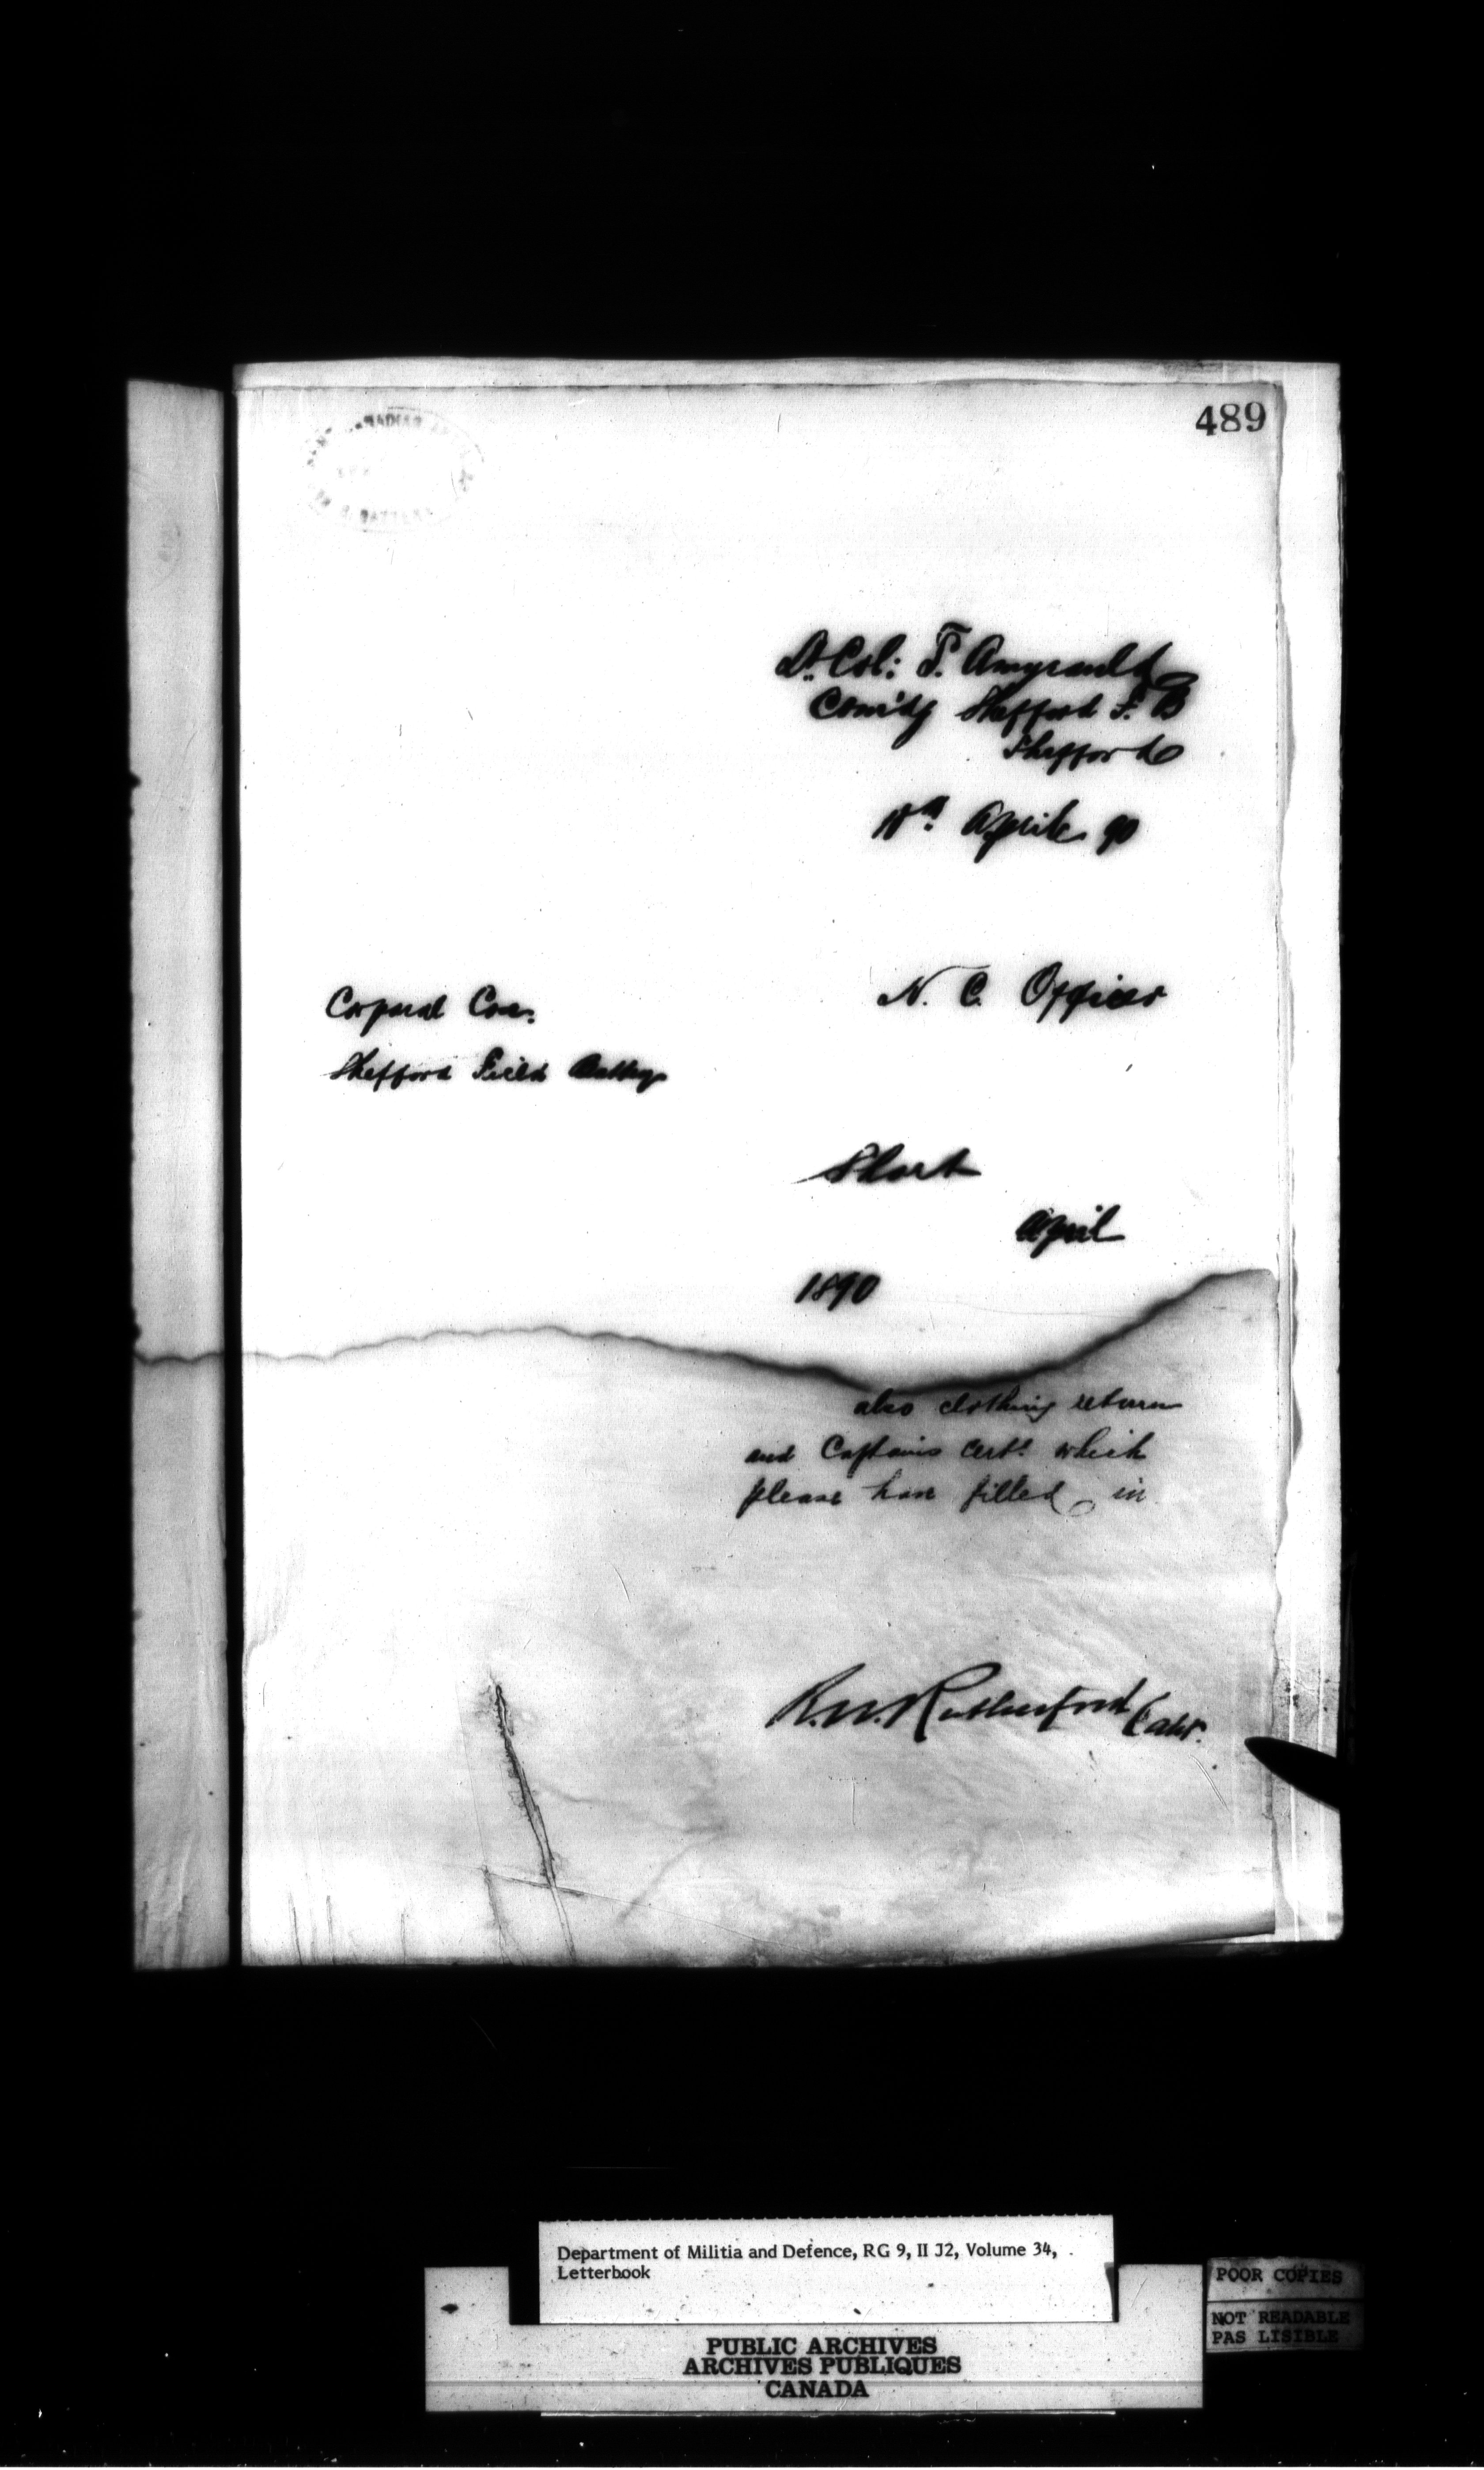 489
Lt. Col: T. Amyrauld
Com'dg Shefford F. B
Shefford
April 90
N. C. Officer
Corporal Cox.
Shefford Field Battery
Short
April
1890
also clothing return
and Captains Cert. which
please have filled in
R.W. Rutherford Capt.
Department of Militia and Defence, RG 9, II J2, Volume 34,
Letterbook
POOR COPIES
NOT READABLE
PAS LISIBLE
PUBLIC ARCHIVES
ARCHIVES PUBLIQUES
CANADA